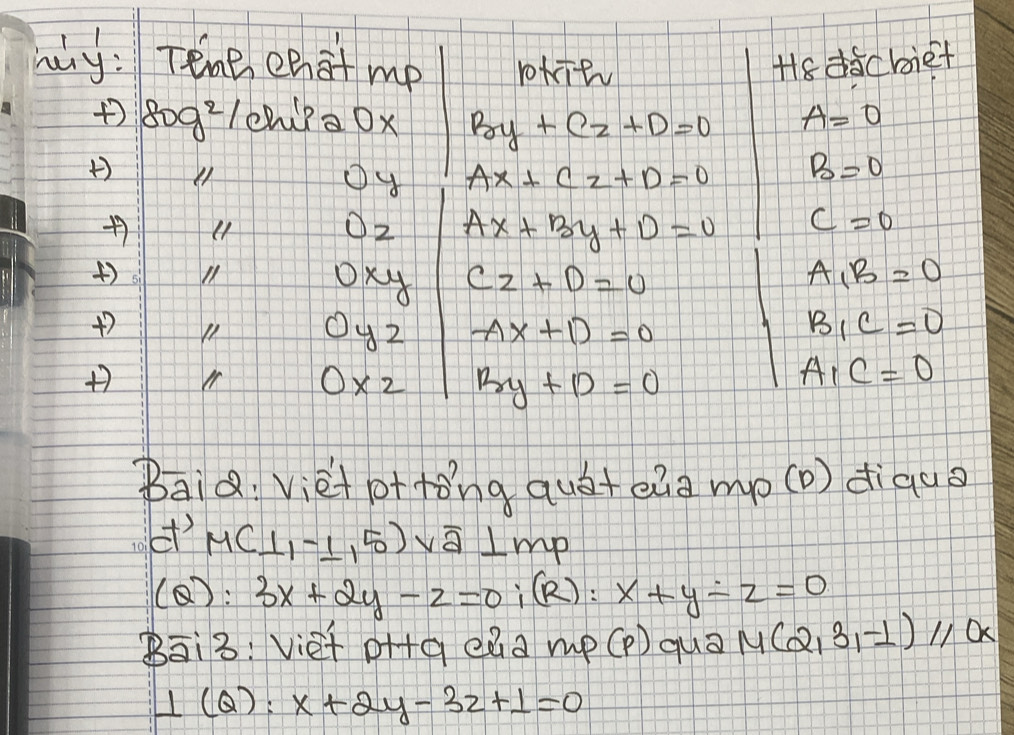 Chú ý: Tính chất mp | ptrình | Hs đặc biệt
+) Sog²/chứa Ox | By + Cz + D = 0 | A = 0
+) " Oy | Ax + Cz + D = 0 | B = 0
+) " Oz | Ax + By + D = 0 | C = 0
+) " Oxy | Cz + D = 0 | A, B = 0
+) " Oyz | Ax + D = 0 | B, C = 0
+) " Oxz | By + D = 0 | A, C = 0
Bài 2: Viết pt tổng quát của mp (P) đi qua
đ' M(1, -1, 5) và ⊥ mp
(Q): 3x + 2y - z = 0 ; (R): x + y - z = 0
Bài 3: Viết pttq của mp (P) qua M(2, 3, -1) // Ox
⊥ (Q): x + 2y - 3z + 1 = 0